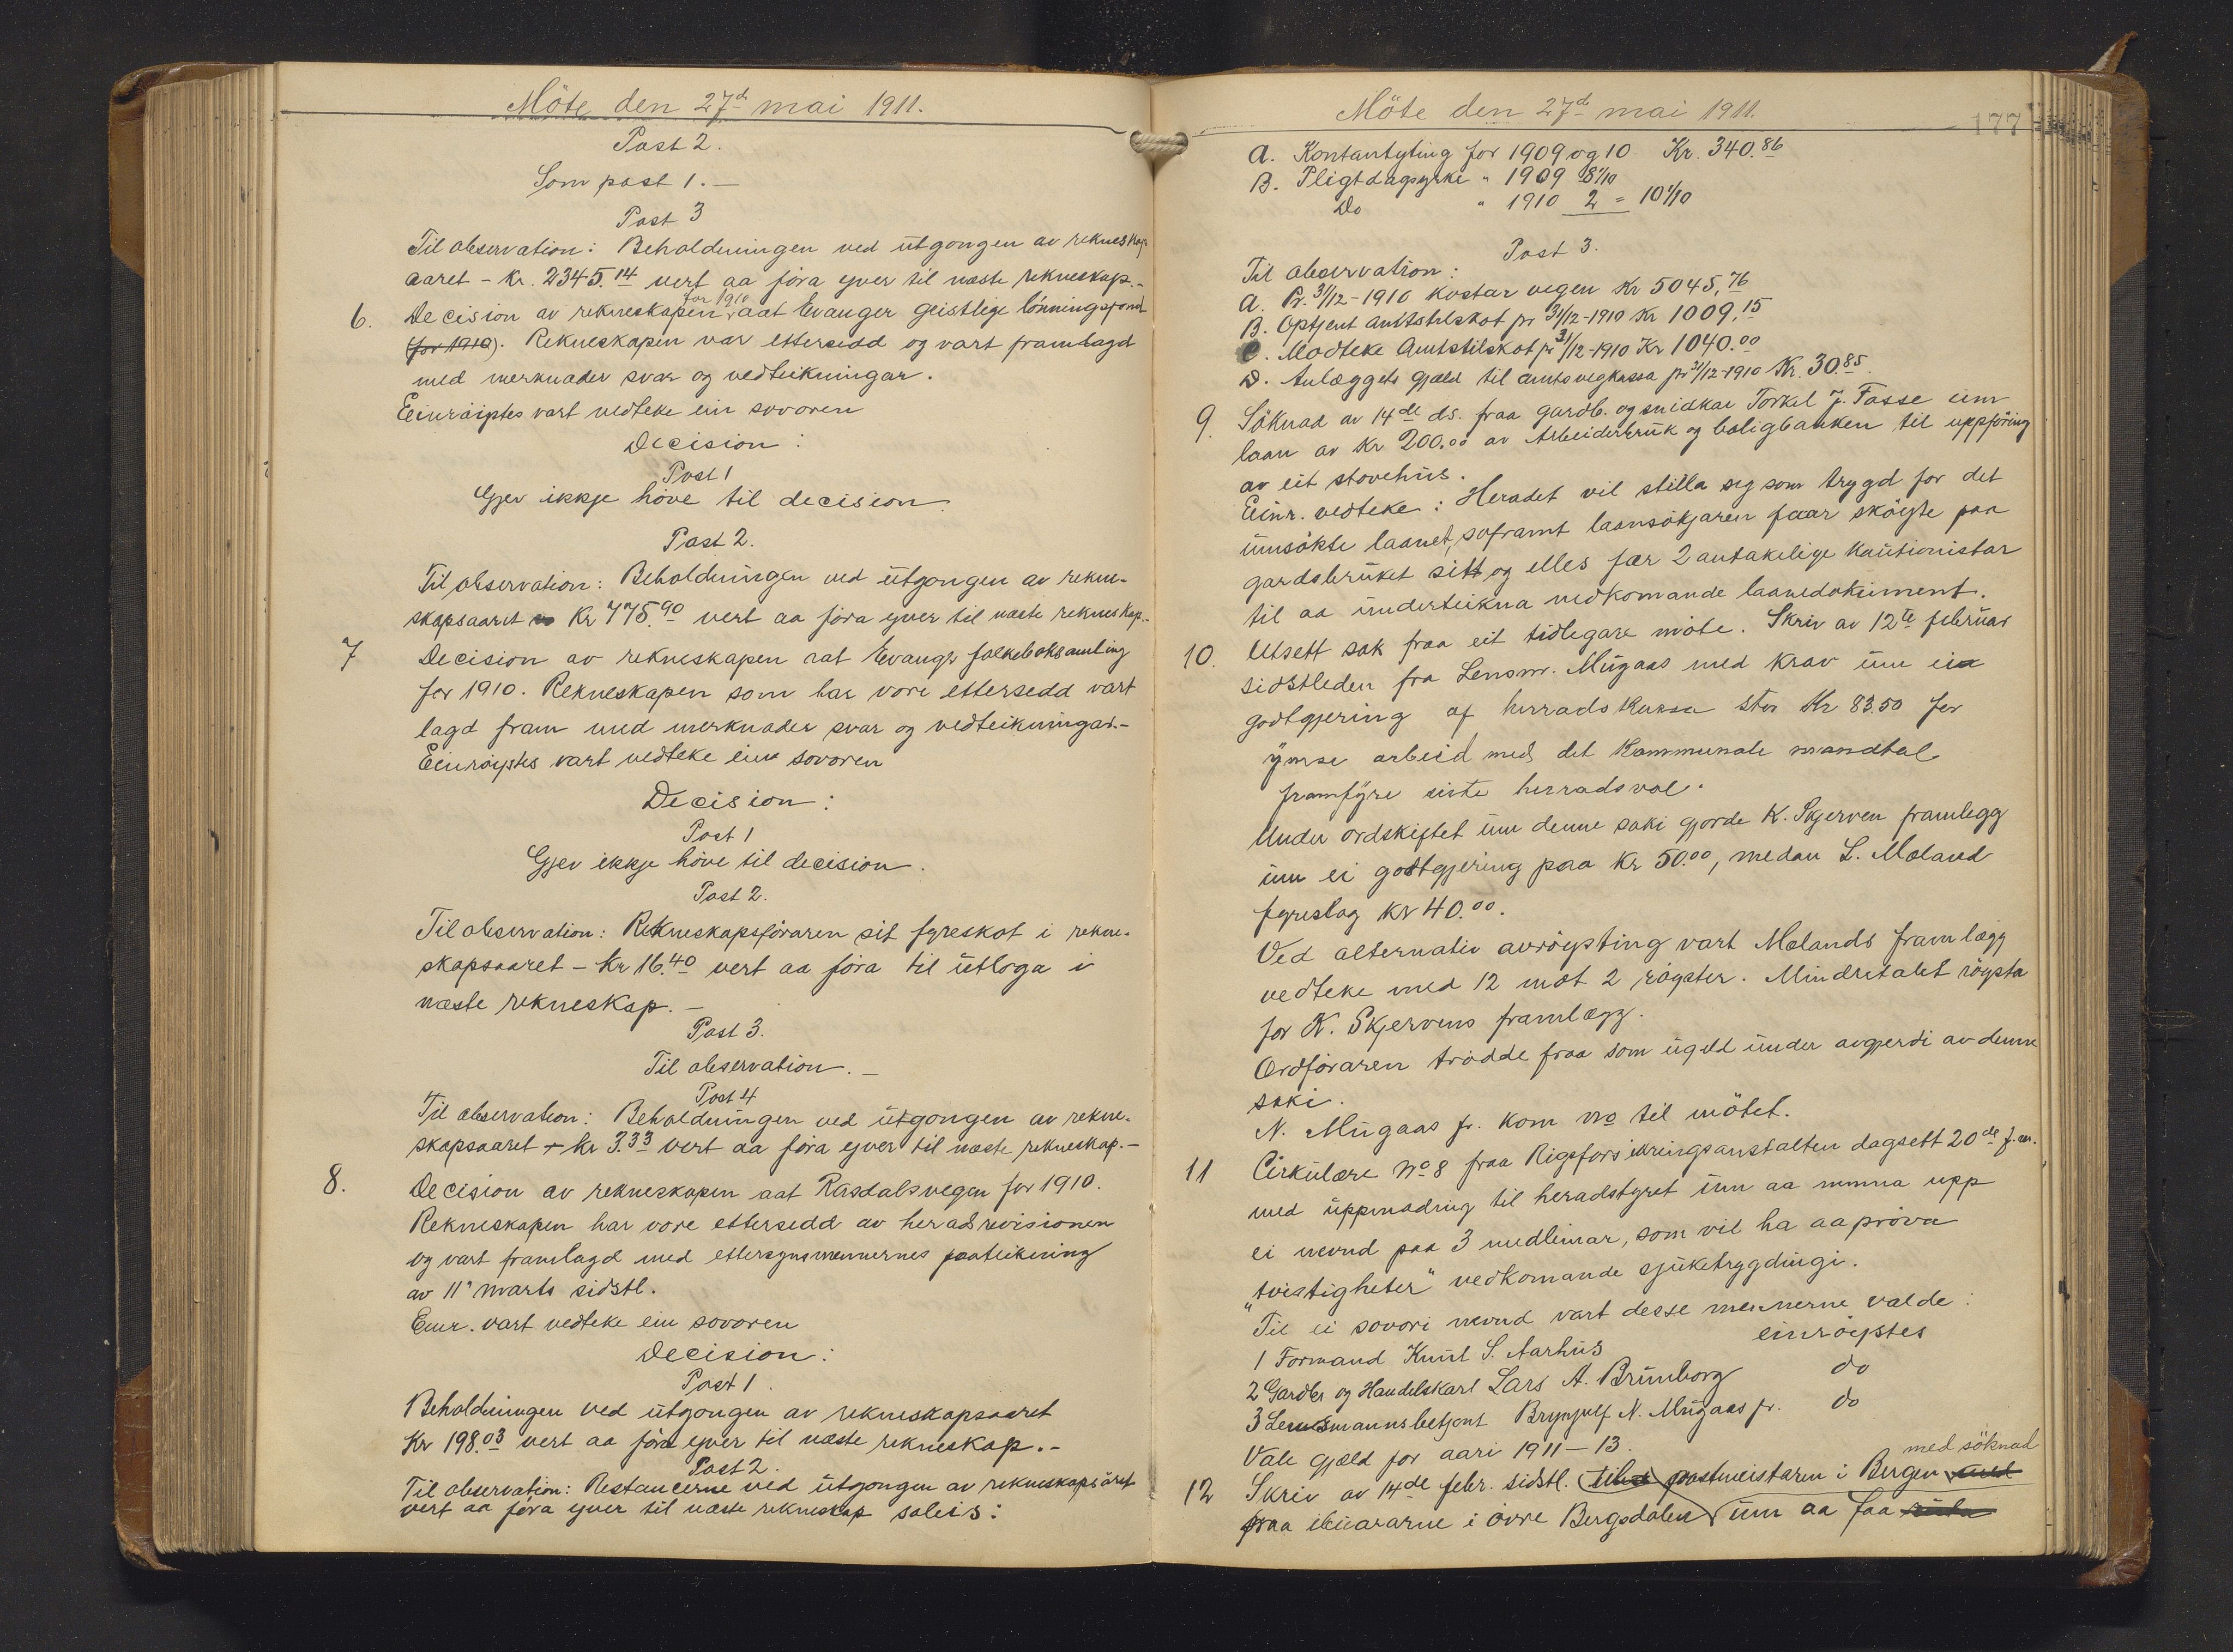 Möte den 27d mai 1911.
Post 2.
Som post 1. —
Post 3
Til observation: Beholdningen ved utgongen av rekneskap
aaret - kr. 2345.14 vert aaföra yver til næste rekneskap.-
6. Decision av rekneskapen for 1910 aat Evanger geistlige lönningsfond
(for 1910). Rekneskapen var ettersedd og vart framlagd
med merknader svar og vedteikningar.
Einröistes vart vedteke ein sovoren
Decision:
Post 1
Gjev ikkje höve til decision.
Post 2.
Til observation: Beholdningen ved utgongen av rekne-
skapsaaret Kr 775.90 vert aa föra yver til næste rekneskap.-
7 Decision av rekneskapen aat Evanger folkeboksamling
for 1910. Rekneskapen som har vore ettersedd vart
lagd fram med merknader svar og vedteikningar.-
Einröystes vart vedteke ein sovoren
Decision:
Post 1
Gjev ikkje höve til decision.
Post 2.
Til observation: Rekneskapsföraren sit fyreskot i rekne-
skapsaaret - kr 16.40 vert aa föra til utloga i
næste rekneskap. —
Post 3.
Til observation. —
Post 4
Til observation: Beholdningen ved utgongen av rekne-
skapsaaret + kr 3.33 vert aa föra yver til næste rekneskap. —
8. Decision av rekneskapen aat Rasdalsvegen for 1910.
Rekneskapen har vore ettersedd av heradsrevisionen
og vart framlagd med ettersynsmennernes paateikning
av 11' marts sidstl.
Einr. vart vedteke ein sovoren
Decision:
Post 1.
Beholdningen ved utgongen av rekneskapsaaret
Kr 198.03 vert aa föra yver til næste rekneskap. -
Post 2.
Til observation: Restancerne ved utgongen av rekneskapsåret
vert aa föra yver til næste rekneskap soleis:
Möte den 27de mai 1911.
177
A. Kontantyting for 1909 og 10 Kr. 340.86
B. Pligtdagsyrke " 1909 8 1/10
Do " 1910 2 = 10 1/10
Post 3.
Til observation:
A. Pr. 31/12-1910 kostar vegen Kr 5045,76
B. Optjent amtstilskot pr 31/12-1910 Kr 1009,15
C. Modteke Amtstilskot pr 31/12-1910 Kr 1040.00
D. Anlæggets gjæld til amtsvegkassa pr 31/12-1910 Kr. 30.85.
9. Söknad av 14de ds. fraa gardb. og snidkar Torkel J. Fasse um
laan av Kr 200.00 av Arbeiderbruk og boligbanken til uppföring
av eit stovehus.
Einr. vedteke: Heradet vil stilla seg som trygd for det
umsökte laanet, soframt laansökjaren faar sköyte paa
gardsbruket sitt og elles fær 2 antakelige kautionistar
til aa underteikna vedkomande laanedokument.
10. Utsett sak fraa eit tidlegare möte. Skriv av 12te februar
sidstleden fra Lensm. Mugaas med krav um ei
godtgjering af herradskassa stor Kr 83.50 for
ymse arbeid med det kommunale mandtal
framfyre siste herradsval.
Under ordskiftet um denne saki gjorde K. Skjerven framlegg
um ei godtgjering paa Kr 50.00, medan L. Mæland
fyreslog Kr 40.00.
Ved alternativ avröysting vart Mælands framlegg
vedteke med 12 mot 2 röyster. Mindretalet röysta
for K. Skjervens framlegg.
Ordföraren trödde fraa som ugild under avgjerdi av denne
saki.
N. Mugaas jr. kom no til mötet.
11 Cirkulære No 8 fraa Rigsforsikringsanstalten dagsett 20de f.m.
med uppmoding til heradstyret um aa nemna upp
ei nemnd paa 3 medlimar, som vil ha aa pröva
"tvistigheter" vedkomande sjuketrygdingi.
Til ei sovori nemnd vart desse mennerne valde:
1 Formand Knut S. Aarhus einröystes
2 Gardbr og Handelskarl Lars A. Brunborg do
3 Lensmannsbetjent Brynjulf N. Mugaas jr. do
Vale gjæld for aari 1911-13.
12 Skriv av 14de febr. sidstl. til postmeistaren i Bergen med med söknad
fraa ibuararne i övre Bergsdalen um aa faa